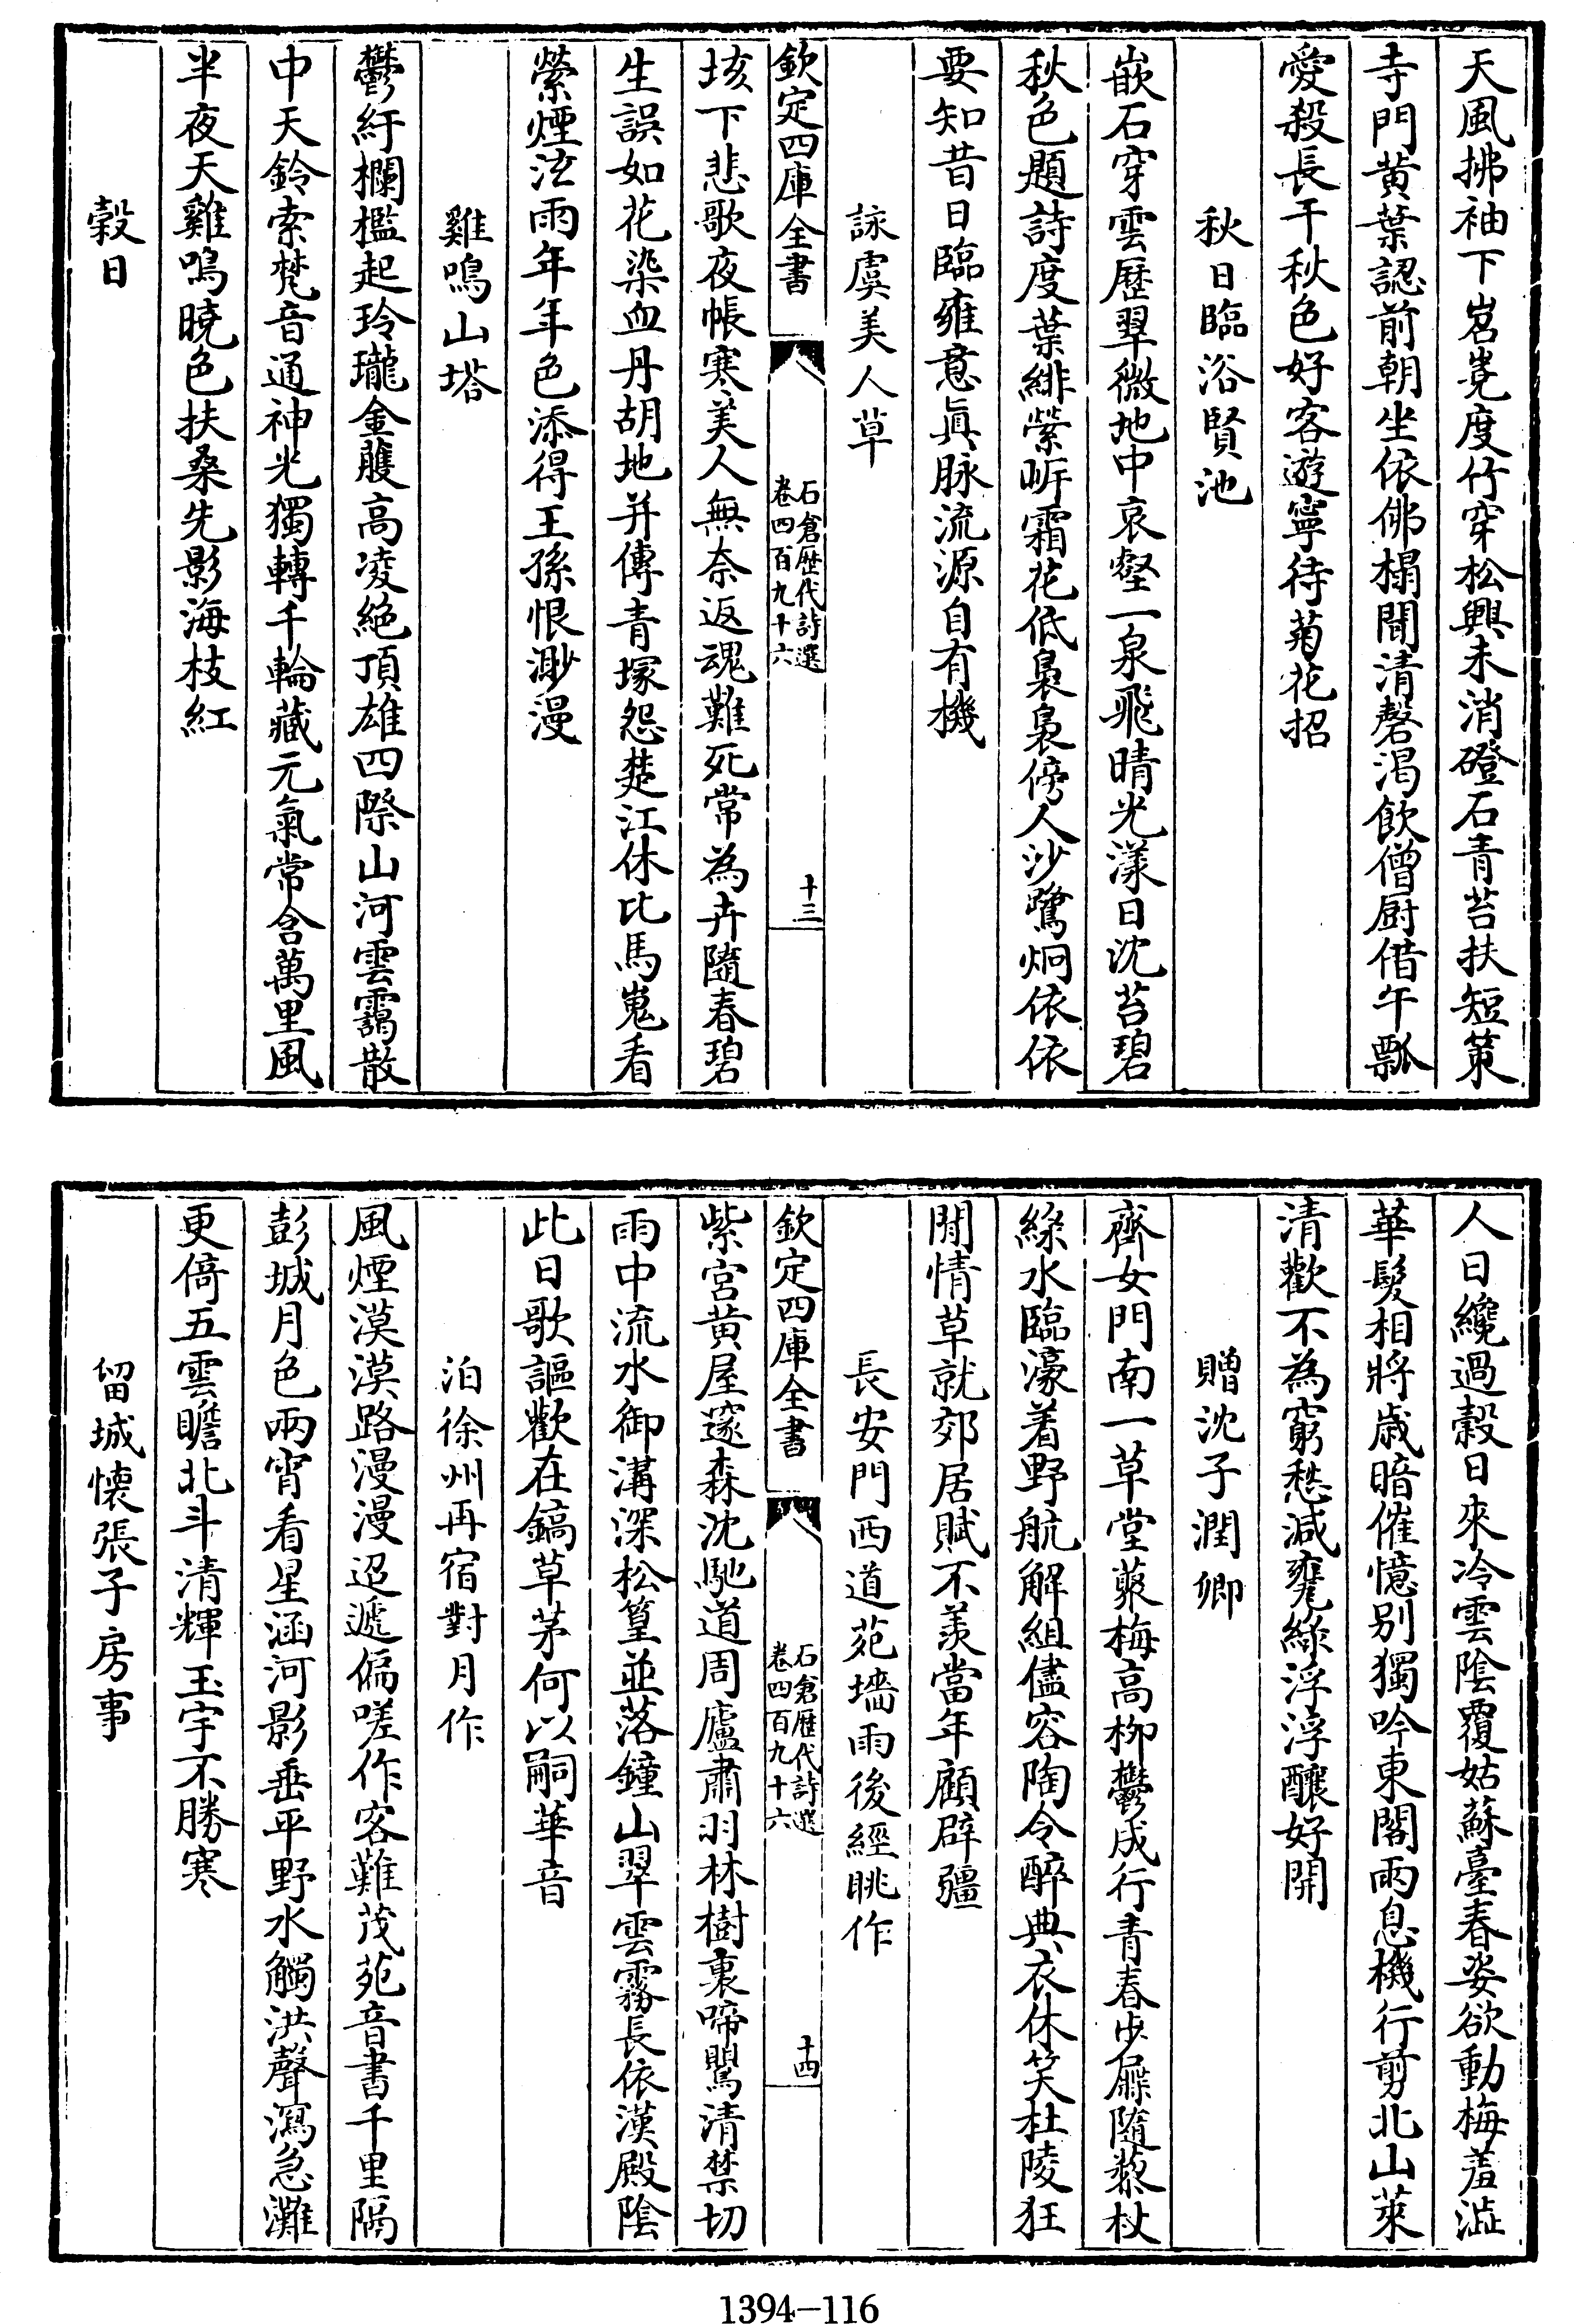 天風拂袖下岧嶤度竹穿松興未消磴石青苔扶短策
寺門黄葉認前朝坐依佛榻聞清磬渴飲僧厨借午瓢
愛殺長干秋色好客遊寧待菊花招
秋日臨浴賢池
嵌石穿雲歷翠微地中哀壑一泉飛晴光漾日沈苔碧
秋色題詩度葉緋縈岍霜花低裊裊傍人沙鷺炯依依
要知昔日臨雍意眞脉流源自有機
詠虞美人草
欽定四庫全書
石倉歷代詩選
卷四百九十六
十三
垓下悲歌夜帳寒美人無奈返魂難死常為卉隨春碧
生誤如花染血丹胡地并傳青塚怨楚江休比馬嵬看
縈煙泫雨年年色添得王孫恨渺漫
雞鳴山塔
鬱紆欄檻起玲瓏金雘高凌絶頂雄四際山河雲靄散
中天鈴索梵音通神光獨轉千輪藏元氣常含萬里風
半夜天雞鳴曉色扶桑先影海枝紅
穀日
人日纔過穀日來冷雲陰覆姑蘇臺春姿欲動梅羞澁
華髮相將歲暗催憶别獨吟東閣雨息機行剪北山萊
清歡不為窮愁減甕綠浮浮釀好開
贈沈子潤卿
齊女門南一草堂蔌梅高柳鬱成行青春步屧隨藜杖
綠水臨濠着野航解組儘容陶令醉典衣休笑杜陵狂
閒情草就郊居賦不羡當年顧辟疆
長安門西道苑墻雨後經眺作
欽定四庫全書
石倉歷代詩選
卷四百九十六
十四
紫宮黄屋邃森沈馳道周廬肅羽林樹裏啼鸎清禁切
雨中流水御溝深松篁並落鐘山翠雲霧長依漢殿陰
此日歌謳歡在鎬草茅何以嗣華音
泊徐州再宿對月作
風煙漠漠路漫漫迢遞偏嗟作客難茂苑音書千里隔
彭城月色兩宵看星涵河影垂平野水觸洪聲瀉急灘
更倚五雲瞻北斗清輝玉宇不勝寒
留城懐張子房事
1394—116